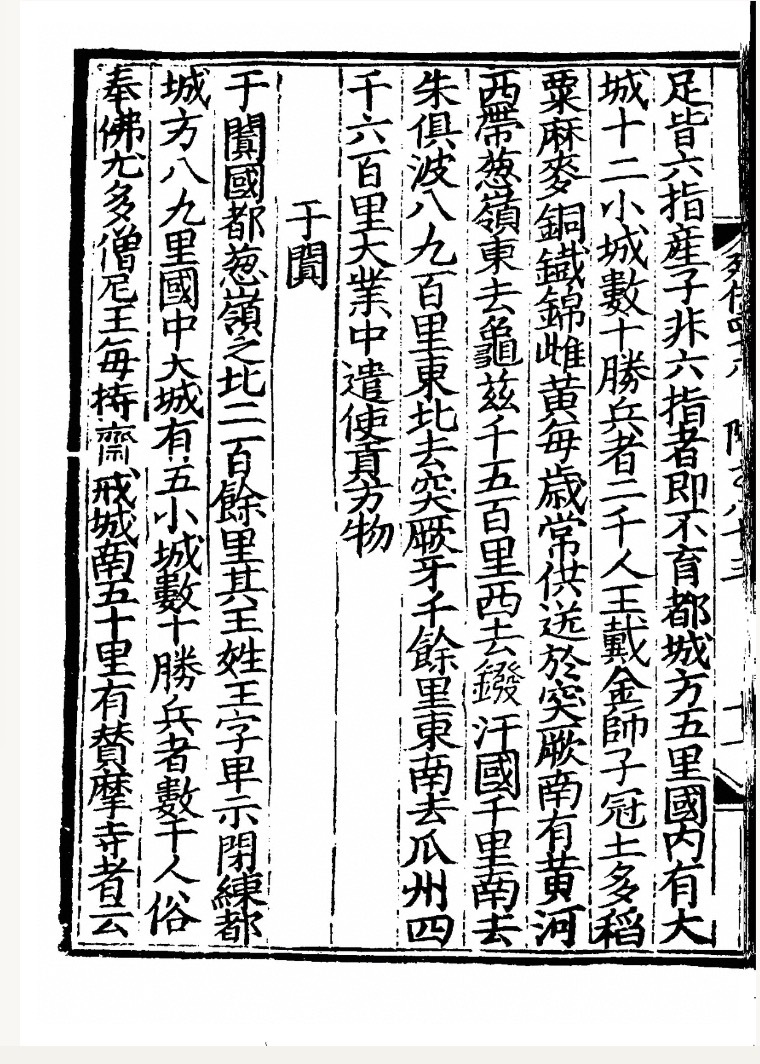 足皆六指産子非六指者即不育都城方五里國内有大
城十二小城數十勝兵者二千人王戴金師子冠土多稻
粟麻麥銅鐵錦雌黃每歲常供送於突厥南有黃河
西帶葱嶺東去龜兹千五百里西去鏺汗國千里南去
朱俱波八九百里東北去突厥牙千餘里東南去瓜州四
千六百里大業中遣使貢方物
于闐
于闐國都葱嶺之北二百餘里其王姓王字卑示閉練都
城方八九里國中大城有五小城數十勝兵者數千人俗
奉佛尤多僧尼王每持齋戒城南五十里有賛摩寺者云